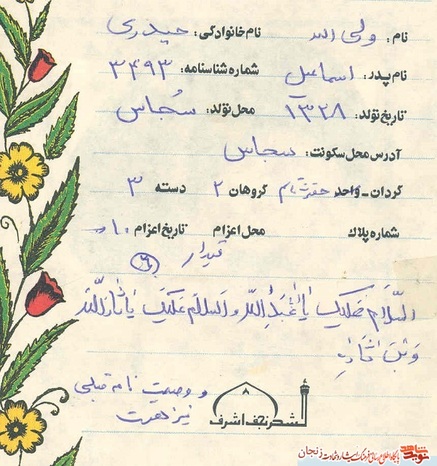 نام: ولی الله نام خانوادگی: حیدری
نام پدر: اسماعیل شماره شناسنامه: ۳۴۹۳
تاریخ تولد: ۱۳۲۸ محل تولد: سُجاس
آدرس محل سکونت: سجاس
گردان - واحد گروهان ۲ دسته ۳
شماره پلاک محل اعزام تاریخ اعزام
قیدار
السَّلام عَلیکَ یا اَباعَبدِاللّه و السلام عَلَیکَ یا ثاراللّه
وَ بنَ ثارِهِ
و وصیت نامه قبلی
نیز هست
۸
لشکر نجف اشرف
نوید شاهد
زنجان